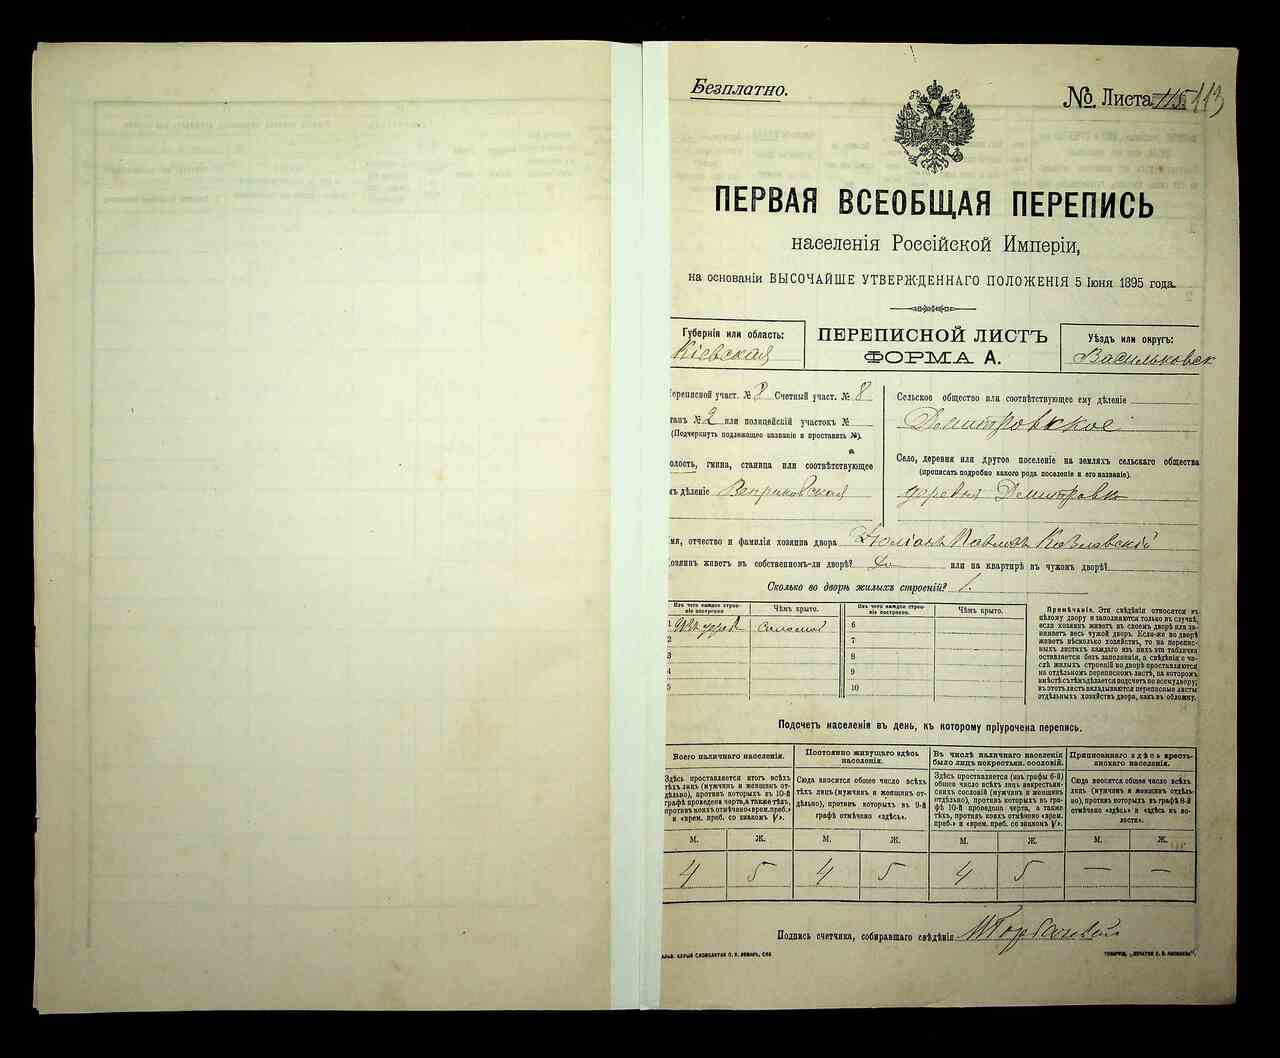 Безплатно.
№ Листа 115 113
ПЕРВАЯ ВСЕОБЩАЯ ПЕРЕПИСЬ
населенія Россійской Имперіи,
на основаніи ВЫСОЧАЙШЕ УТВЕРЖДЕННАГО ПОЛОЖЕНІЯ 5 Іюня 1895 года.
Губернія или область:
Кіевская
ПЕРЕПИСНОЙ ЛИСТЪ
ФОРМА А.
Уѣздъ или округъ:
Васильковск
Переписной участ. № 8 Счетный участ. № 8
танъ № 2 или полицейскій участокъ №
(Подчеркнуть подлежащее названіе и проставить №).
олость, гмина, станица или соотвѣтствующее
мъ дѣленіе Веприковская
Сельское общество или соотвѣтствующее ему дѣленіе
Демитровкное
Село, деревня или другое поселеніе на земляхъ сельскаго общества
(прописать подробно какого рода поселеніе и его названіе).
деревня Демитровка
мя, отчество и фамилія хозяина двора Юліанъ Павловъ Козлавскій
Хозяинъ живетъ въ собственномъ-ли дворѣ? Да или на квартирѣ въ чужомъ дворѣ?
Сколько во дворѣ жилыхъ строеній? 1.
Изъ чего каждое строеніе построено. Чѣмъ крыто. Изъ чего каждое строеніе построено. Чѣмъ крыто.
1 Соломой 6
2 7
3 8
4 9
5 10
Примѣчаніе. Эти свѣдѣнія относятся къ
цѣлому двору и заполняются только въ случаѣ,
если хозяинъ живетъ въ своемъ дворѣ или за-
нимаетъ весь чужой дворъ. Если-же во дворѣ
живетъ нѣсколько хозяйствъ, то на перепис-
ныхъ листахъ каждаго изъ нихъ эта табличка
оставляется безъ заполненія, а свѣдѣнія о чи-
слѣ жилыхъ строеній во дворѣ проставляются
на отдѣльномъ переписномъ листѣ, на которомъ
вмѣстѣ съ тѣмъ дѣлается подсчетъ по всему двору;
въ этотъ листъ вкладываются переписные листы
отдѣльныхъ хозяйствъ двора, какъ въ обложку.
Подсчетъ населенія въ день, къ которому пріурочена перепись.
Всего наличнаго населенія.
Здѣсь проставляется итогъ всѣхъ
тѣхъ лицъ (мужчинъ и женщинъ от-
дѣльно), противъ которыхъ въ 10-й
графѣ проведена черта, а также тѣхъ,
противъ коихъ отмѣчено «врем. преб.»
и «врем. преб. со знакомъ V».
Постоянно живущаго здѣсь
населенія.
Сюда вносится общее число всѣхъ
тѣхъ лицъ (мужчинъ и женщинъ от-
дѣльно), противъ которыхъ въ 9-й
графѣ отмѣчено «здѣсь».
Въ числѣ наличнаго населенія
было лицъ некрестьян. сословій.
Здѣсь проставляется (изъ графы 6-й)
общее число всѣхъ лицъ некрестьян-
скихъ сословій (мужчинъ и женщинъ
отдѣльно), противъ которыхъ въ гра-
фѣ 10-й проведена черта, а также
тѣхъ, противъ коихъ отмѣчено «врем.
преб.» и «врем. преб. со знакомъ V».
Приписаннаго здѣсь кресть-
янскаго населенія.
Сюда вносится общее число всѣхъ
лицъ (мужчинъ и женщинъ отдѣль-
но), противъ которыхъ въ графѣ 8-й
отмѣчено «здѣсь» и «здѣсь въ во-
лости».
М. Ж. М. Ж. М. Ж. М. Ж.
4 5 4 5 4 5 — —
Подпись счетчика, собиравшаго свѣдѣнія